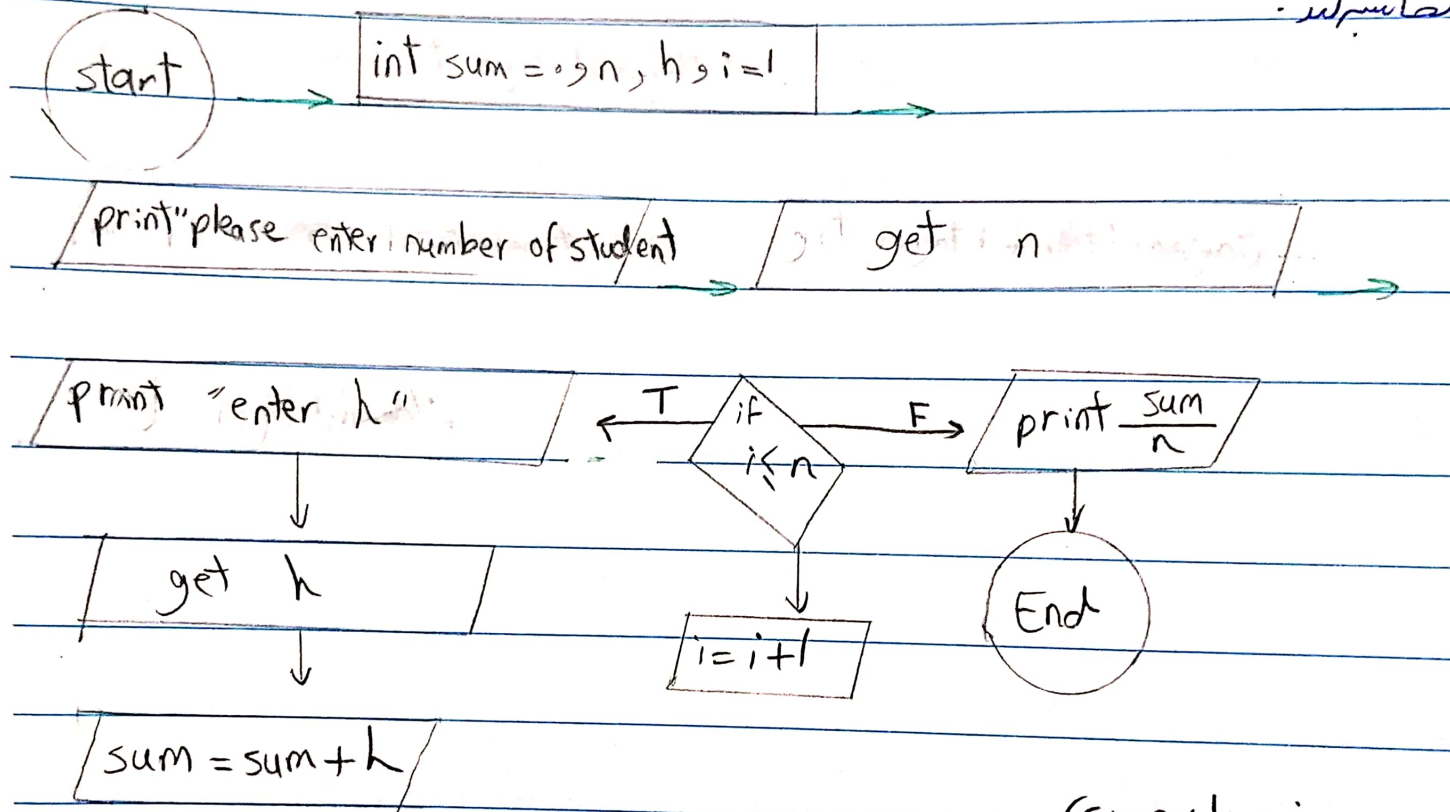 start
int sum = ۰, n, h, i=1
print "please enter number of student
get n
print "enter h"
T
if
i≤n
F
print sum/n
get h
i = i+1
End
sum = sum + h